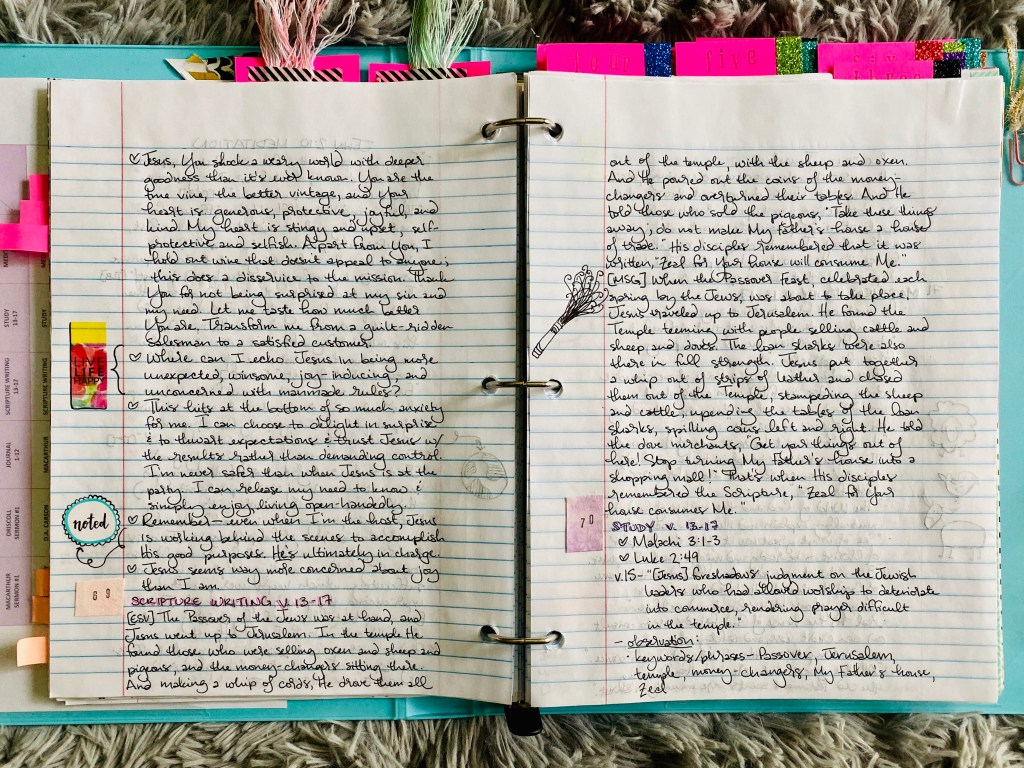 four
five
♡ Jesus, You shock a weary world with deeper
goodness than it's ever known. You are the
true vine, the better vintage, and Your
heart is generous, protective, joyful, and
kind. My heart is stingy and upset, self-
protective and selfish. Apart from You, I
hold out wine that doesn't appeal to anyone;
this does a disservice to the mission. Thank
You for not being surprised at my sin and
my need. Let me taste how much better
You are. Transform me from a guilt-ridden
salesman to a satisfied customer.
♡ Where can I echo Jesus in being more
unexpected, winsome, joy-inducing, and
unconcerned with manmade rules?
♡ This hits at the bottom of so much anxiety
for me. I can choose to delight in surprise
& to thwart expectations & trust Jesus w/
the results rather than demanding control.
I'm never safer than when Jesus is at the
party. I can release my need to know &
simply enjoy living open-handedly.
♡ Remember - even when I'm the host, Jesus
is working behind the scenes to accomplish
His good purposes. He's ultimately in charge.
♡ Jesus seems way more concerned about joy
than I am.
SCRIPTURE WRITING v. 13-17
[ESV] The Passover of the Jews was at hand, and
Jesus went up to Jerusalem. In the temple He
found those who were selling oxen and sheep and
pigeons, and the money-changers sitting there.
And making a whip of cords, He drove them all
LIVE
LIFE
HAPPY
noted
69
STUDY
13-17
STUDY
SCRIPTURE WRITING
13-17
SCRIPTURE WRITING
JOURNAL
1-12
MACARTHUR
DRISCOLL
SERMON #1
D.A. CARSON
MACARTHUR
SERMON #1
out of the temple, with the sheep and oxen.
And He poured out the coins of the money-
changers and overturned their tables. And He
told those who sold the pigeons, "Take these things
away; do not make My Father's house a house
of trade." His disciples remembered that it was
written, "Zeal for Your house will consume Me."
[MSG] When the Passover Feast, celebrated each
spring by the Jews, was about to take place,
Jesus traveled up to Jerusalem. He found the
Temple teeming with people selling cattle and
sheep and doves. The loan sharks were also
there in full strength. Jesus put together
a whip out of strips of leather and chased
them out of the Temple, stampeding the sheep
and cattle, upending the tables of the loan
sharks, spilling coins left and right. He told
the dove merchants, "Get your things out of
here! Stop turning My Father's house into a
shopping mall!" That's when His disciples
remembered the Scripture, "Zeal for Your
house consumes Me."
70
STUDY v. 13-17
♡ Malachi 3:1-3
♡ Luke 2:49
v.15- "[Jesus] foreshadows judgment on the Jewish
leaders who had allowed worship to deteriorate
into commerce, rendering prayer difficult
in the temple."
- observation:
· keywords/phrases- Passover, Jerusalem,
temple, money-changers, My Father's house,
Zeal